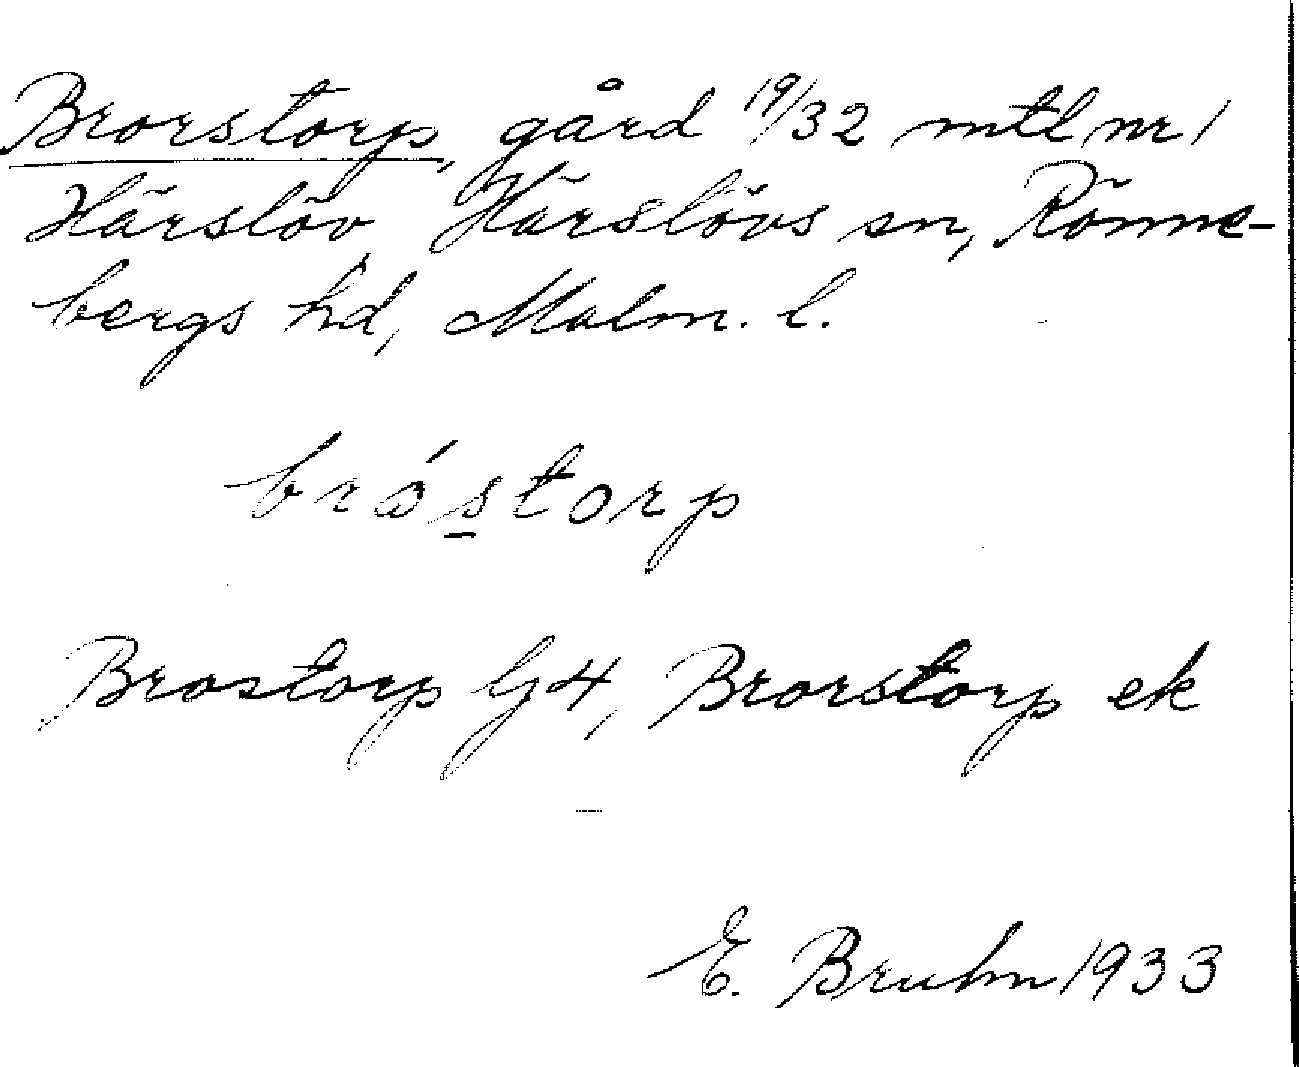 Brorstorp, gård 19/32 mtl nr 1
Härslöv, Härslövs sn, Rönne-
bergs hd, Malm. l.
bró´storp
Brostorp G4, Brorstorp ek
E. Bruhn 1933